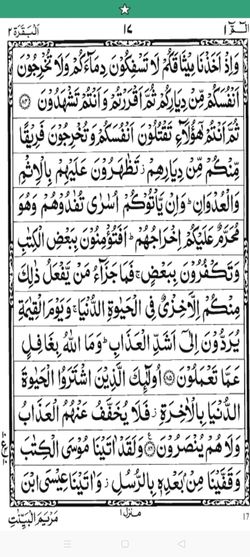 الٓمّٓ ١ ١٧ اَلْبَقَرَة ٢
وَاِذْ اَخَذْنَا مِيْثَاقَكُمْ لَا تَسْفِكُوْنَ دِمَآءَكُمْ وَلَا تُخْرِجُوْنَ
اَنْفُسَكُمْ مِّنْ دِيَارِكُمْ ثُمَّ اَقْرَرْتُمْ وَاَنْتُمْ تَشْهَدُوْنَ ۝٨٤
ثُمَّ اَنْتُمْ هٰٓؤُلَآءِ تَقْتُلُوْنَ اَنْفُسَكُمْ وَتُخْرِجُوْنَ فَرِيْقًا
مِّنْكُمْ مِّنْ دِيَارِهِمْ تَظٰهَرُوْنَ عَلَيْهِمْ بِالْاِثْمِ
وَالْعُدْوَانِ ؕ وَاِنْ يَّاْتُوْكُمْ اُسٰرٰى تُفٰدُوْهُمْ وَهُوَ
مُحَرَّمٌ عَلَيْكُمْ اِخْرَاجُهُمْ ؕ اَفَتُؤْمِنُوْنَ بِبَعْضِ الْكِتٰبِ
وَتَكْفُرُوْنَ بِبَعْضٍ ۚ فَمَا جَزَآءُ مَنْ يَّفْعَلُ ذٰلِكَ
مِنْكُمْ اِلَّا خِزْىٌ فِى الْحَيٰوةِ الدُّنْيَا ۚ وَيَوْمَ الْقِيٰمَةِ
يُرَدُّوْنَ اِلٰٓى اَشَدِّ الْعَذَابِ ؕ وَمَا اللّٰهُ بِغَافِلٍ
عَمَّا تَعْمَلُوْنَ ۝٨٥ اُولٰٓئِكَ الَّذِيْنَ اشْتَرَوُا الْحَيٰوةَ
الدُّنْيَا بِالْاٰخِرَةِ ؗ فَلَا يُخَفَّفُ عَنْهُمُ الْعَذَابُ
وَلَا هُمْ يُنْصَرُوْنَ ۝٨٦ وَلَقَدْ اٰتَيْنَا مُوْسَى الْكِتٰبَ
وَقَفَّيْنَا مِنْۢ بَعْدِهٖ بِالرُّسُلِ ؗ وَاٰتَيْنَا عِيْسَى ابْنَ
منزل ١
مَرْيَمَ الْبَيِّنٰتِ
17